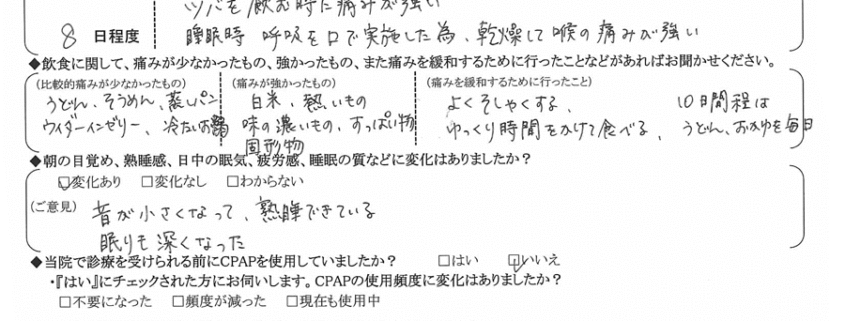 ツバを飲む時に痛みが強い
8 日程度 睡眠時 呼吸を口で実施した為、乾燥して喉の痛みが強い
◆飲食に関して、痛みが少なかったもの、強かったもの、また痛みを緩和するために行ったことなどがあればお聞かせください。
(比較的痛みが少なかったもの) (痛みが強かったもの) (痛みを緩和するために行ったこと)
うどん、そうめん、蒸しパン 白米、熱いもの よくそしゃくする、 10日間程は
ウイダーインゼリー、冷たいお粥 味の濃いもの、すっぱい物 ゆっくり時間をかけて食べる、 うどん、おかゆを毎日
固形物
◆朝の目覚め、熟睡感、日中の眠気、疲労感、睡眠の質などに変化はありましたか?
☑変化あり □変化なし □わからない
(ご意見) 音が小さくなって、熟睡できている
眠りも深くなった
◆当院で診療を受けられる前にCPAPを使用していましたか? □はい ☑いいえ
・『はい』にチェックされた方にお伺いします。CPAPの使用頻度に変化はありましたか?
□不要になった □頻度が減った □現在も使用中